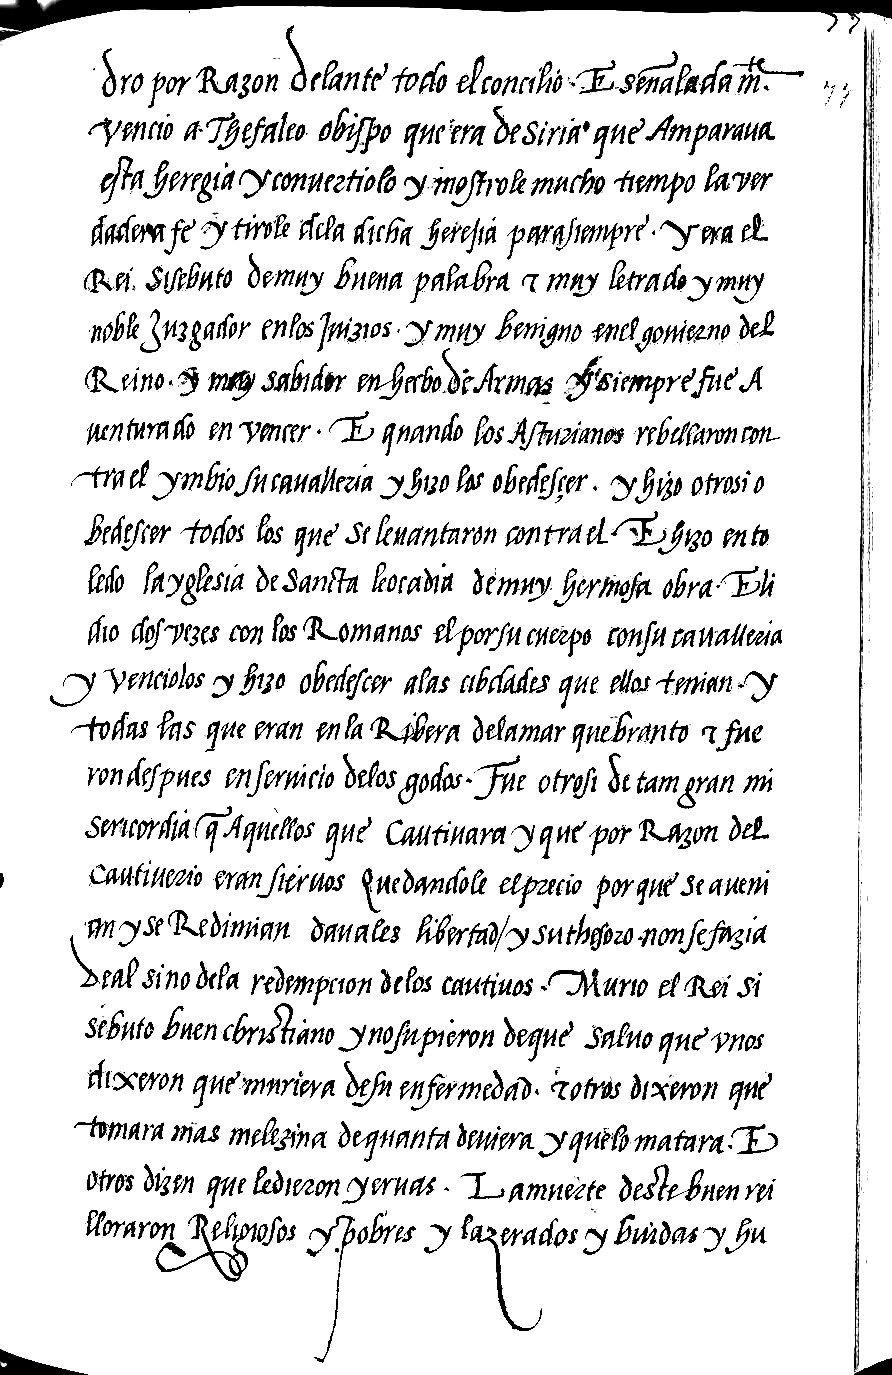 dro por Razon delante todo el concilio · E señalada m̃te.
Vencio a· Thesaleo obispo que era de Siria· que Amparaua
esta heregia y conuertiolo y mostrole mucho tiempo la ver
dadera fe y tirole dela dicha heresia para siempre · y era el
Rei. Sisebuto de muy buena palabra ⁊ muy letrado y muy
noble Juzgador en los Juizios · y muy benigno enel gouierno del
Reino · y muy sabidor en hecho de Armas y siempre fue A
uenturado en vencer · E quando los Asturianos rebellaron con
tra el ymbio su caualleria y hizo los obedesçer . y hizo otrosi o
bedescer todos los que se leuantaron contra el · E hizo en to
ledo la yglesia de Sancta leocadia de muy hermosa obra · E li
dio dos vezes con los Romanos el por su cuerpo con su caualleria
y Venciolos y hizo obedescer alas cibdades que ellos tenian · y
todas las que eran en la Ribera dela mar quebranto ⁊ fue
ron despues en seruicio delos godos · Fue otrosi de tam gran mi
sericordia q̃ Aquellos que Cautiuara y que por Razon del
Cautiuerio eran sieruos Quedandole el precio por que se aueni
an y se Redimian daua les libertad / y su thesoro non se fazia
de al sino dela redempcion delos cautiuos · Murio el Rei Si
sebuto buen christiano y no supieron de que saluo que vnos
dixeron que muriera de su enfermedad · ⁊ otros dixeron que
tomara mas melezina de quanta deuiera y quelo matara · E
otros dizen que le dieron yeruas · La muerte deste buen rei
lloraron Religiosos y pobres y lazerados y biudas y hu